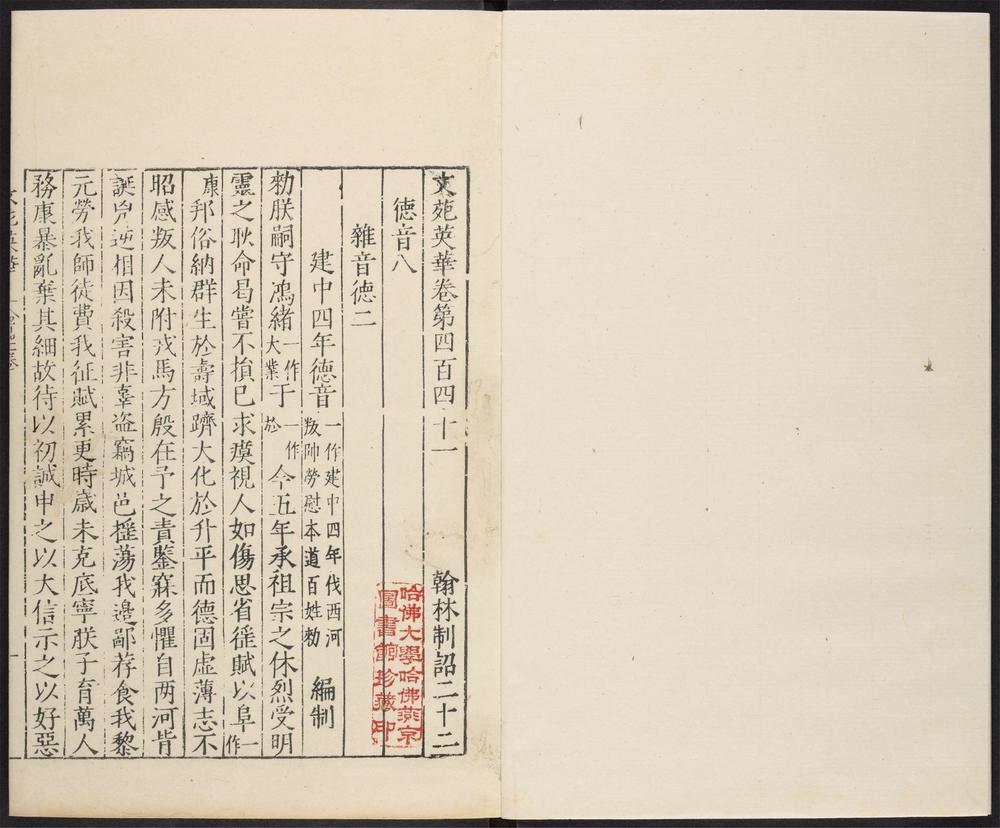 文苑英華卷第四百四十一 翰林制詔二十二
德音八
雜音德二
建中四年德音 一作建中四年伐西河叛帥勞慰本道百姓勑 編制
勑朕嗣守鴻緒一作大業于一作於今五年承祖宗之休烈受明
靈之耿命曷嘗不損己求瘼視人如傷思省徭賦以阜一作
康邦俗納群生於壽域躋大化於升平而德固虛薄志不
昭感叛人未附戎馬方殷在予之責鑒寐多懼自两河肯
誕兇逆相因殺害非辜盗竊城邑摇蕩我邉鄙荐食我黎
元勞我師徒費我征賦累更時歳未克底寧朕子育萬人
務康暴亂棄其細故待以初誠申之以大信示之以好惡
文苑英華
一
哈佛大學哈佛燕京
圖書館珍藏印